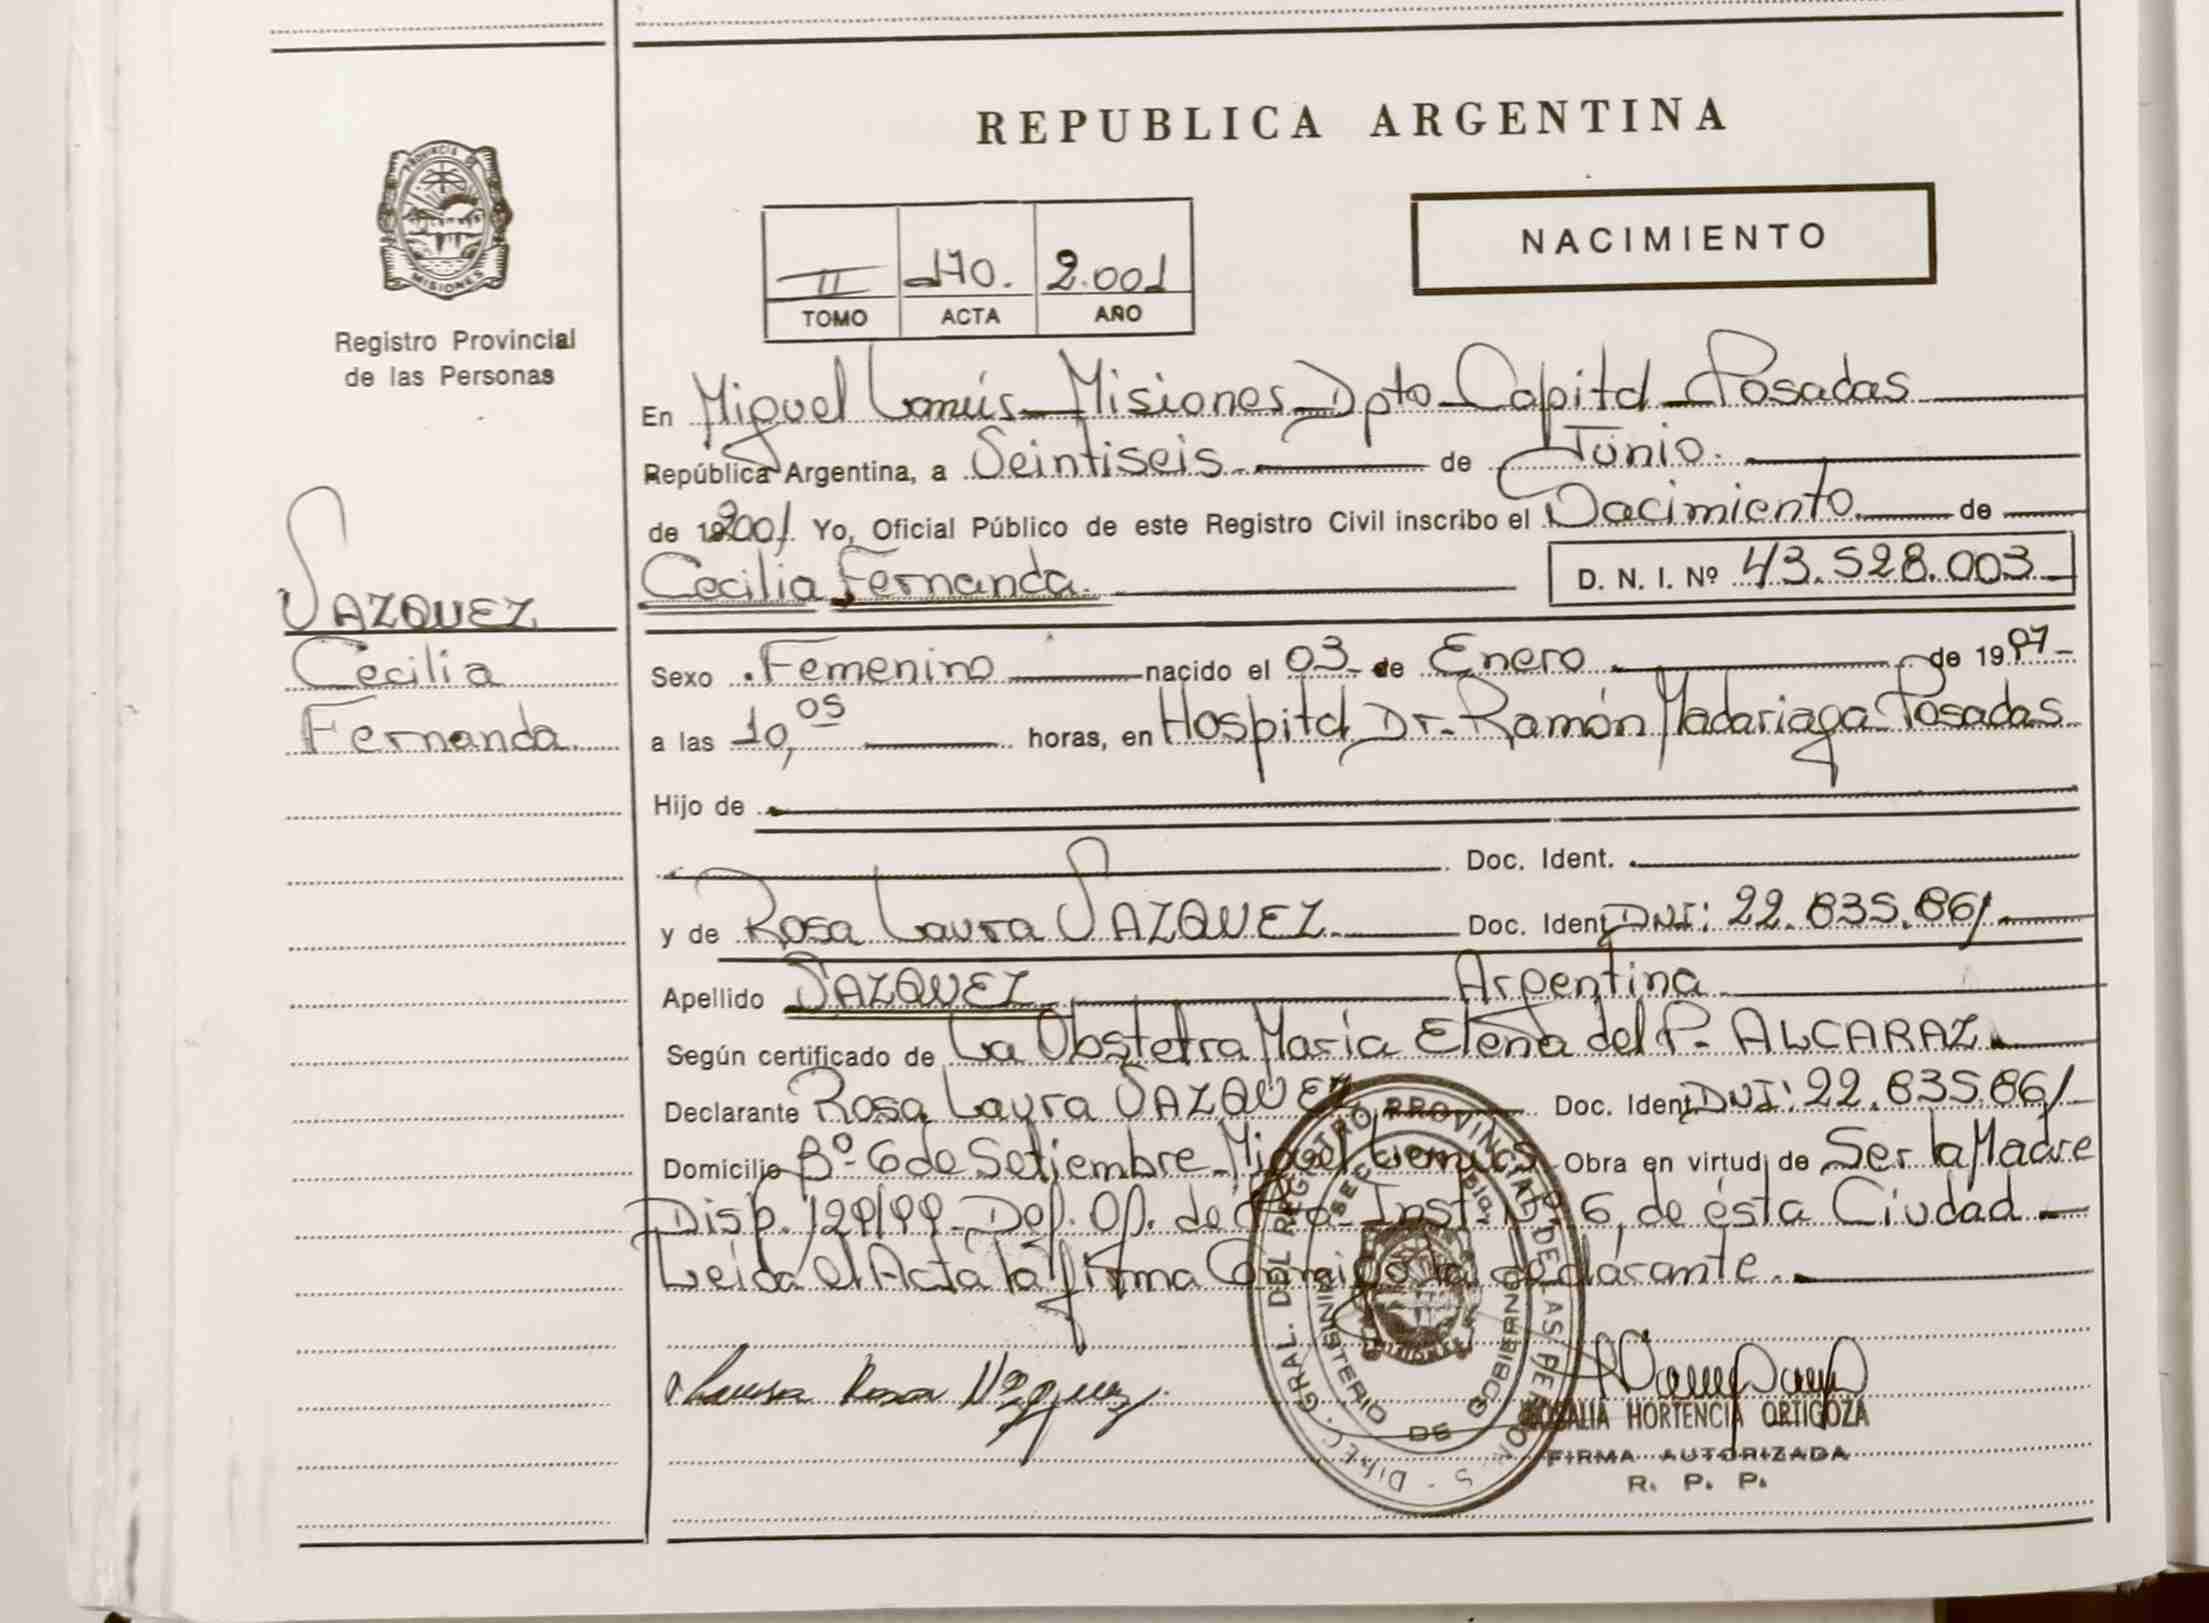 REPUBLICA ARGENTINA
PROVINCIA DE
MISIONES
Registro Provincial
de las Personas
II 170. 2.001
TOMO ACTA AÑO
NACIMIENTO
En Miguel Lanús Misiones Dpto Capital Posadas
República Argentina, a Veintiseis de Junio.
de 2001 Yo, Oficial Público de este Registro Civil inscribo el Nacimiento de
Cecilia Fernanda. D. N. I. Nº 43.528.003
VAZQUEZ
Cecilia
Fernanda
Sexo Femenino nacido el 03 de Enero de 1997
a las 10,05 horas, en Hospital Dr. Ramón Madariaga Posadas
Hijo de
Doc. Ident.
y de Rosa Laura VAZQUEZ Doc. Ident DNI: 22.835.861
Apellido VAZQUEZ Argentina
Según certificado de La Obstetra María Elena del P. ALCARAZ
Declarante Rosa Laura VAZQUEZ Doc. Ident DNI: 22.835.861
Domicilio Bº 6 de Setiembre Miguel Lanús Obra en virtud de Ser la Madre
Disp. 129/99 Def. Of. de Inst. Nº 6, de ésta Ciudad
Leída el Acta la firma Conmigo la declarante.
Laura Rosa Vazquez
DIREC. GRAL. DEL REGISTRO PROVINCIAL DE LAS PERSONAS
MINISTERIO DE GOBIERNO
MISIONES
ROSALIA HORTENCIA ORTIGOZA
FIRMA AUTORIZADA
R. P. P.